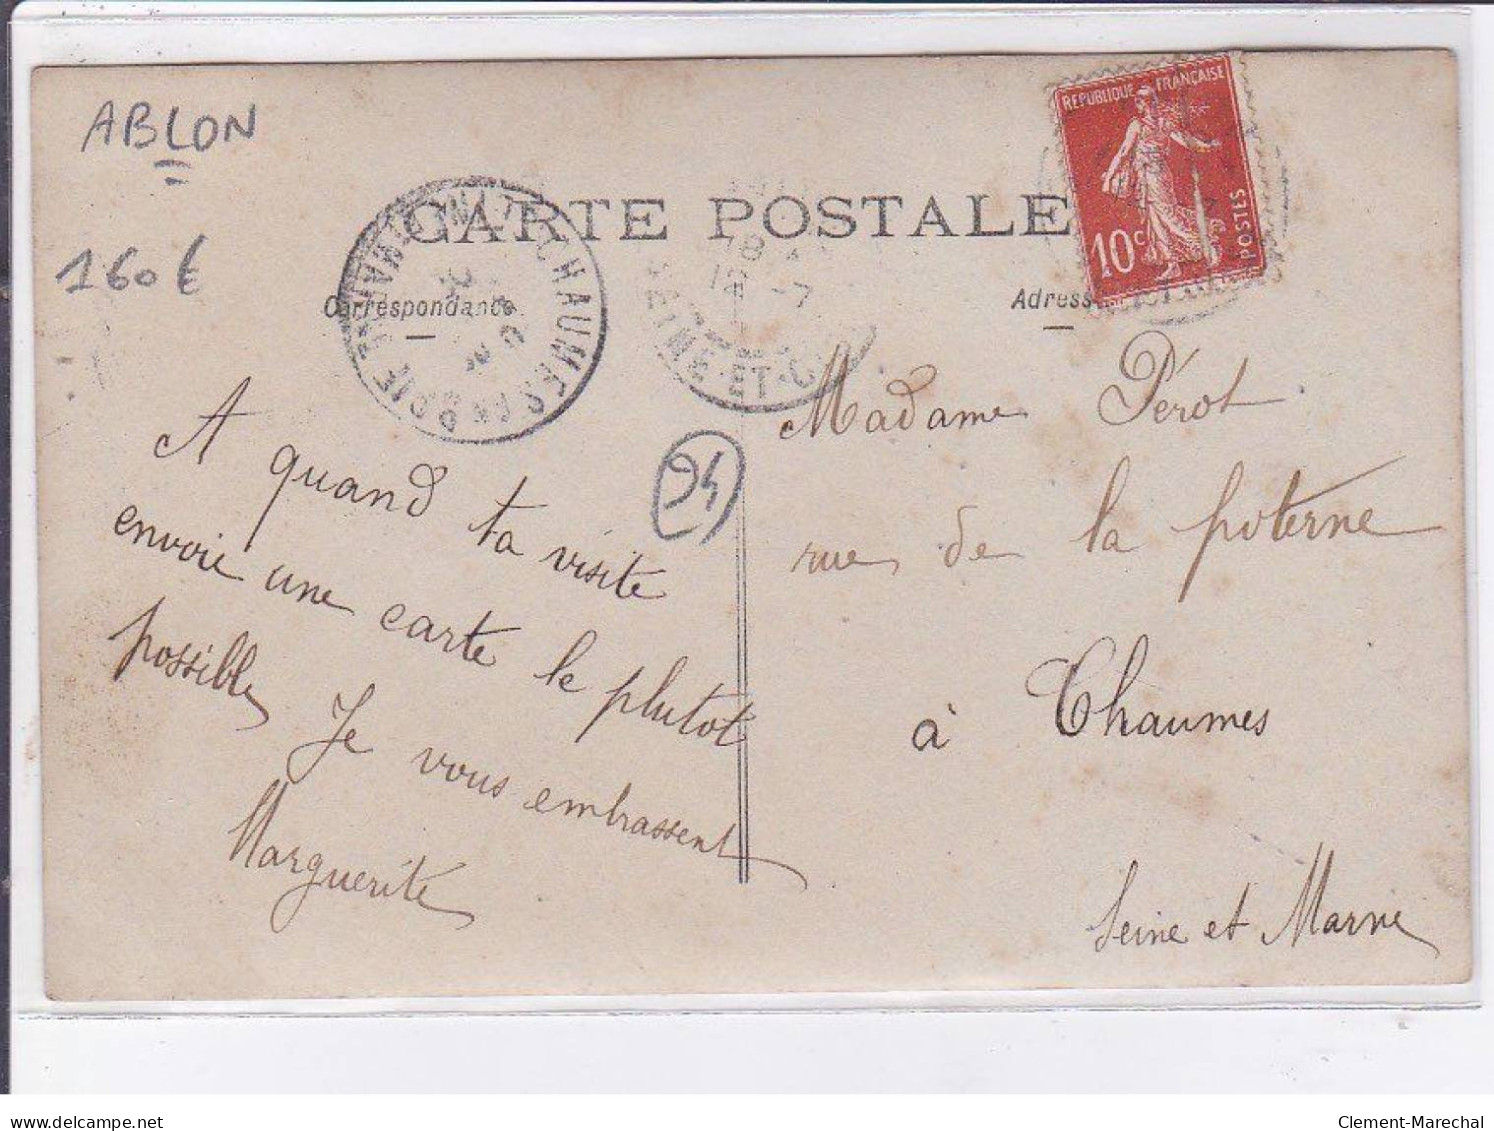 ABLON
160€
CARTE POSTALE
Correspondance
REPUBLIQUE FRANÇAISE
10c
POSTES
CHAUMES-EN-BRIE
SEINE-ET-
24
A quand ta visite
envoie une carte le plutot
possible, Je vous embrassent
Marguerite
Madame Pérot
rue de la poterne
à Chaumes
Seine et Marne
www.delcampe.net
Clement-Marechal